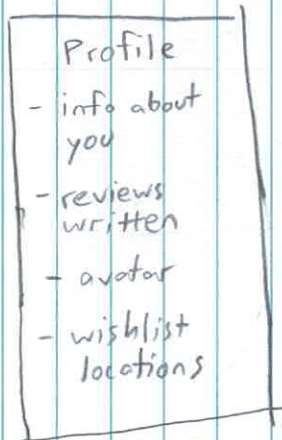 Profile
- info about
you
- reviews
written
- avatar
- wishlist
locations